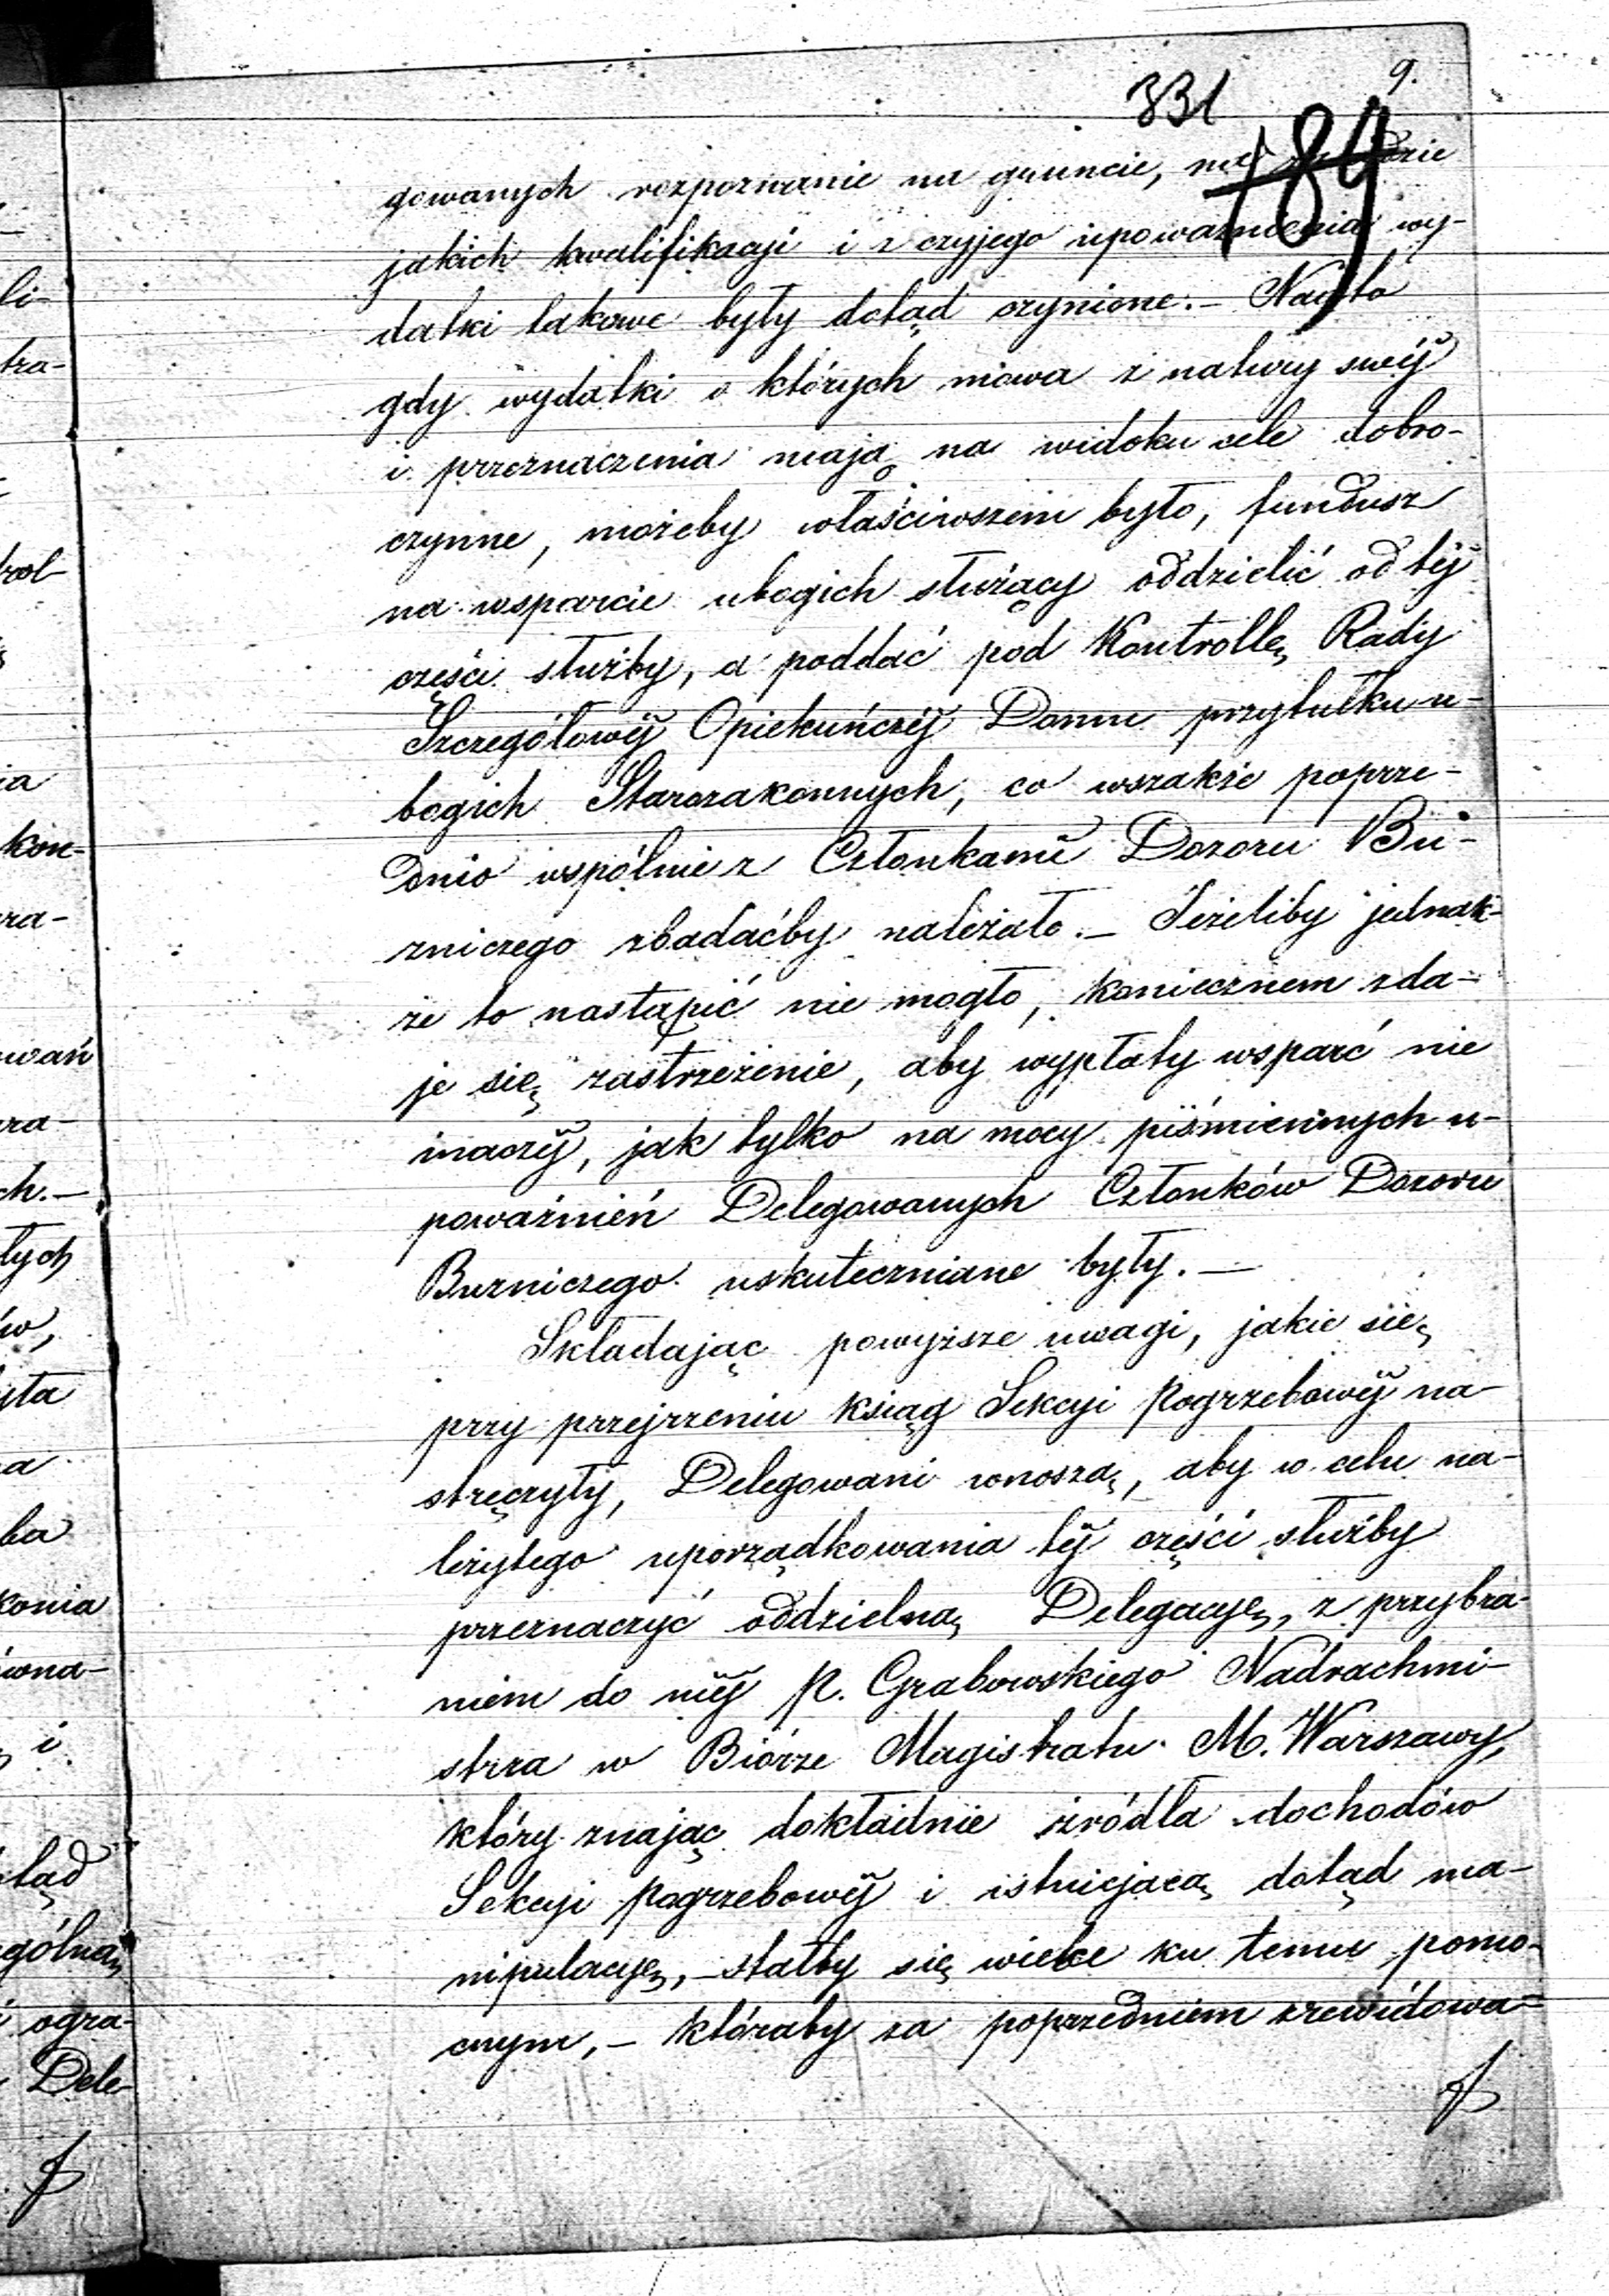 9.
331
189
gowanych rozpoznanie na gruncie, na
jakich kwalifikacyi i z czyjego upoważnienia wy-
datki takowe były dotąd czynione. — Nadto
gdy wydatki o których mowa z natury swéj
i przeznaczenia mają na widoku cele dobro-
czynne, możeby właściwszém było, fundusz
na wsparcie ubogich służący oddzielić od téj
części służby, a poddać pod Kontrollę Rady
Szczegółowéj Opiekuńczéj Domu przytułku u-
bogich Starozakonnych, co wszakże poprze-
dnio wspólnie z Członkami Dozoru Bu-
zniczego zbadaćby należało. — Jeżeliby jednak-
że to nastąpić nie mogło, koniecznem zda-
je się zastrzeżenie, aby wypłaty wsparć nie
inaczéj, jak tylko na mocy piśmiennych u-
poważnień Delegowanych Członków Dozoru
Bużniczego uskuteczniane były. —
Składając powyższe uwagi, jakie się
przy przejrzeniu ksiąg Sekcyi Pogrzebowéj na-
stręczyły, Delegowani wnoszą, aby w celu na-
leżytego uporządkowania téj części służby
przeznaczyć oddzielną Delegacyę, z przybra-
niem do niéj p. Grabowskiego Nadrachmi-
strza w Biórze Magistratu M. Warszawy,
który znając dokładnie źródła dochodów
Sekcyi pogrzebowéj i istniejącą dotąd ma-
nipulacyę, — stałby się wielce ku temu pomo-
cnym, — któraby za poprzedniem zrewidowa-
li-
tra-
ia
kon-
ra-
wań
ra-
ch. —
tych
ów,
yta
a
ba
konia
ówna-
i
tąd
gólną
i ogra-
Dele-